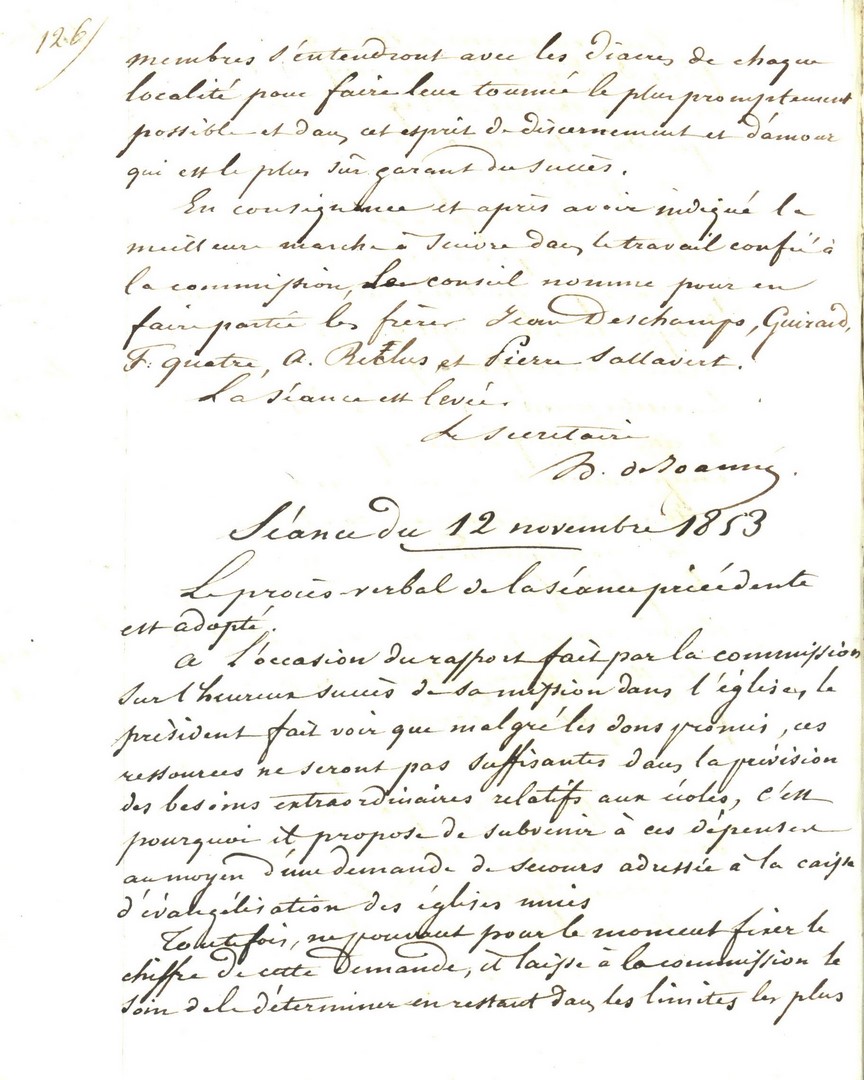 126/
membres s'entendront avec les diacres de chaque
localité pour faire leur tournée le plus promptement
possible et dans cet esprit de discernement et d'amour
qui est le plus sûr garant du succès.
En conséquence et après avoir indiqué la
meilleure marche à suivre dans le travail confié à
la commission, le conseil nomme pour en
faire partie les frères Jean Deschamps, Guiraud,
F. quatre, A. et Pierre Sallavert.
La séance est levée.
Le secrétaire
D. de Joannis.
Séance du 12 novembre 1853
Le procès-verbal de la séance précédente
est adopté.
A l'occasion du rapport fait par la commission
sur l'heureux succès de sa mission dans l'église, le
président fait voir que malgré les dons promis, ces
ressources ne seront pas suffisantes dans la prévision
des besoins extraordinaires relatifs aux écoles, c'est
pourquoi il propose de subvenir à ces dépenses
au moyen d'une demande de secours adressée à la caisse
d'évangélisation des églises unies
Toutefois, ne pouvant pour le moment fixer le
chiffre de cette demande, il laisse à la commission le
soin de le déterminer en restant dans les limites les plus